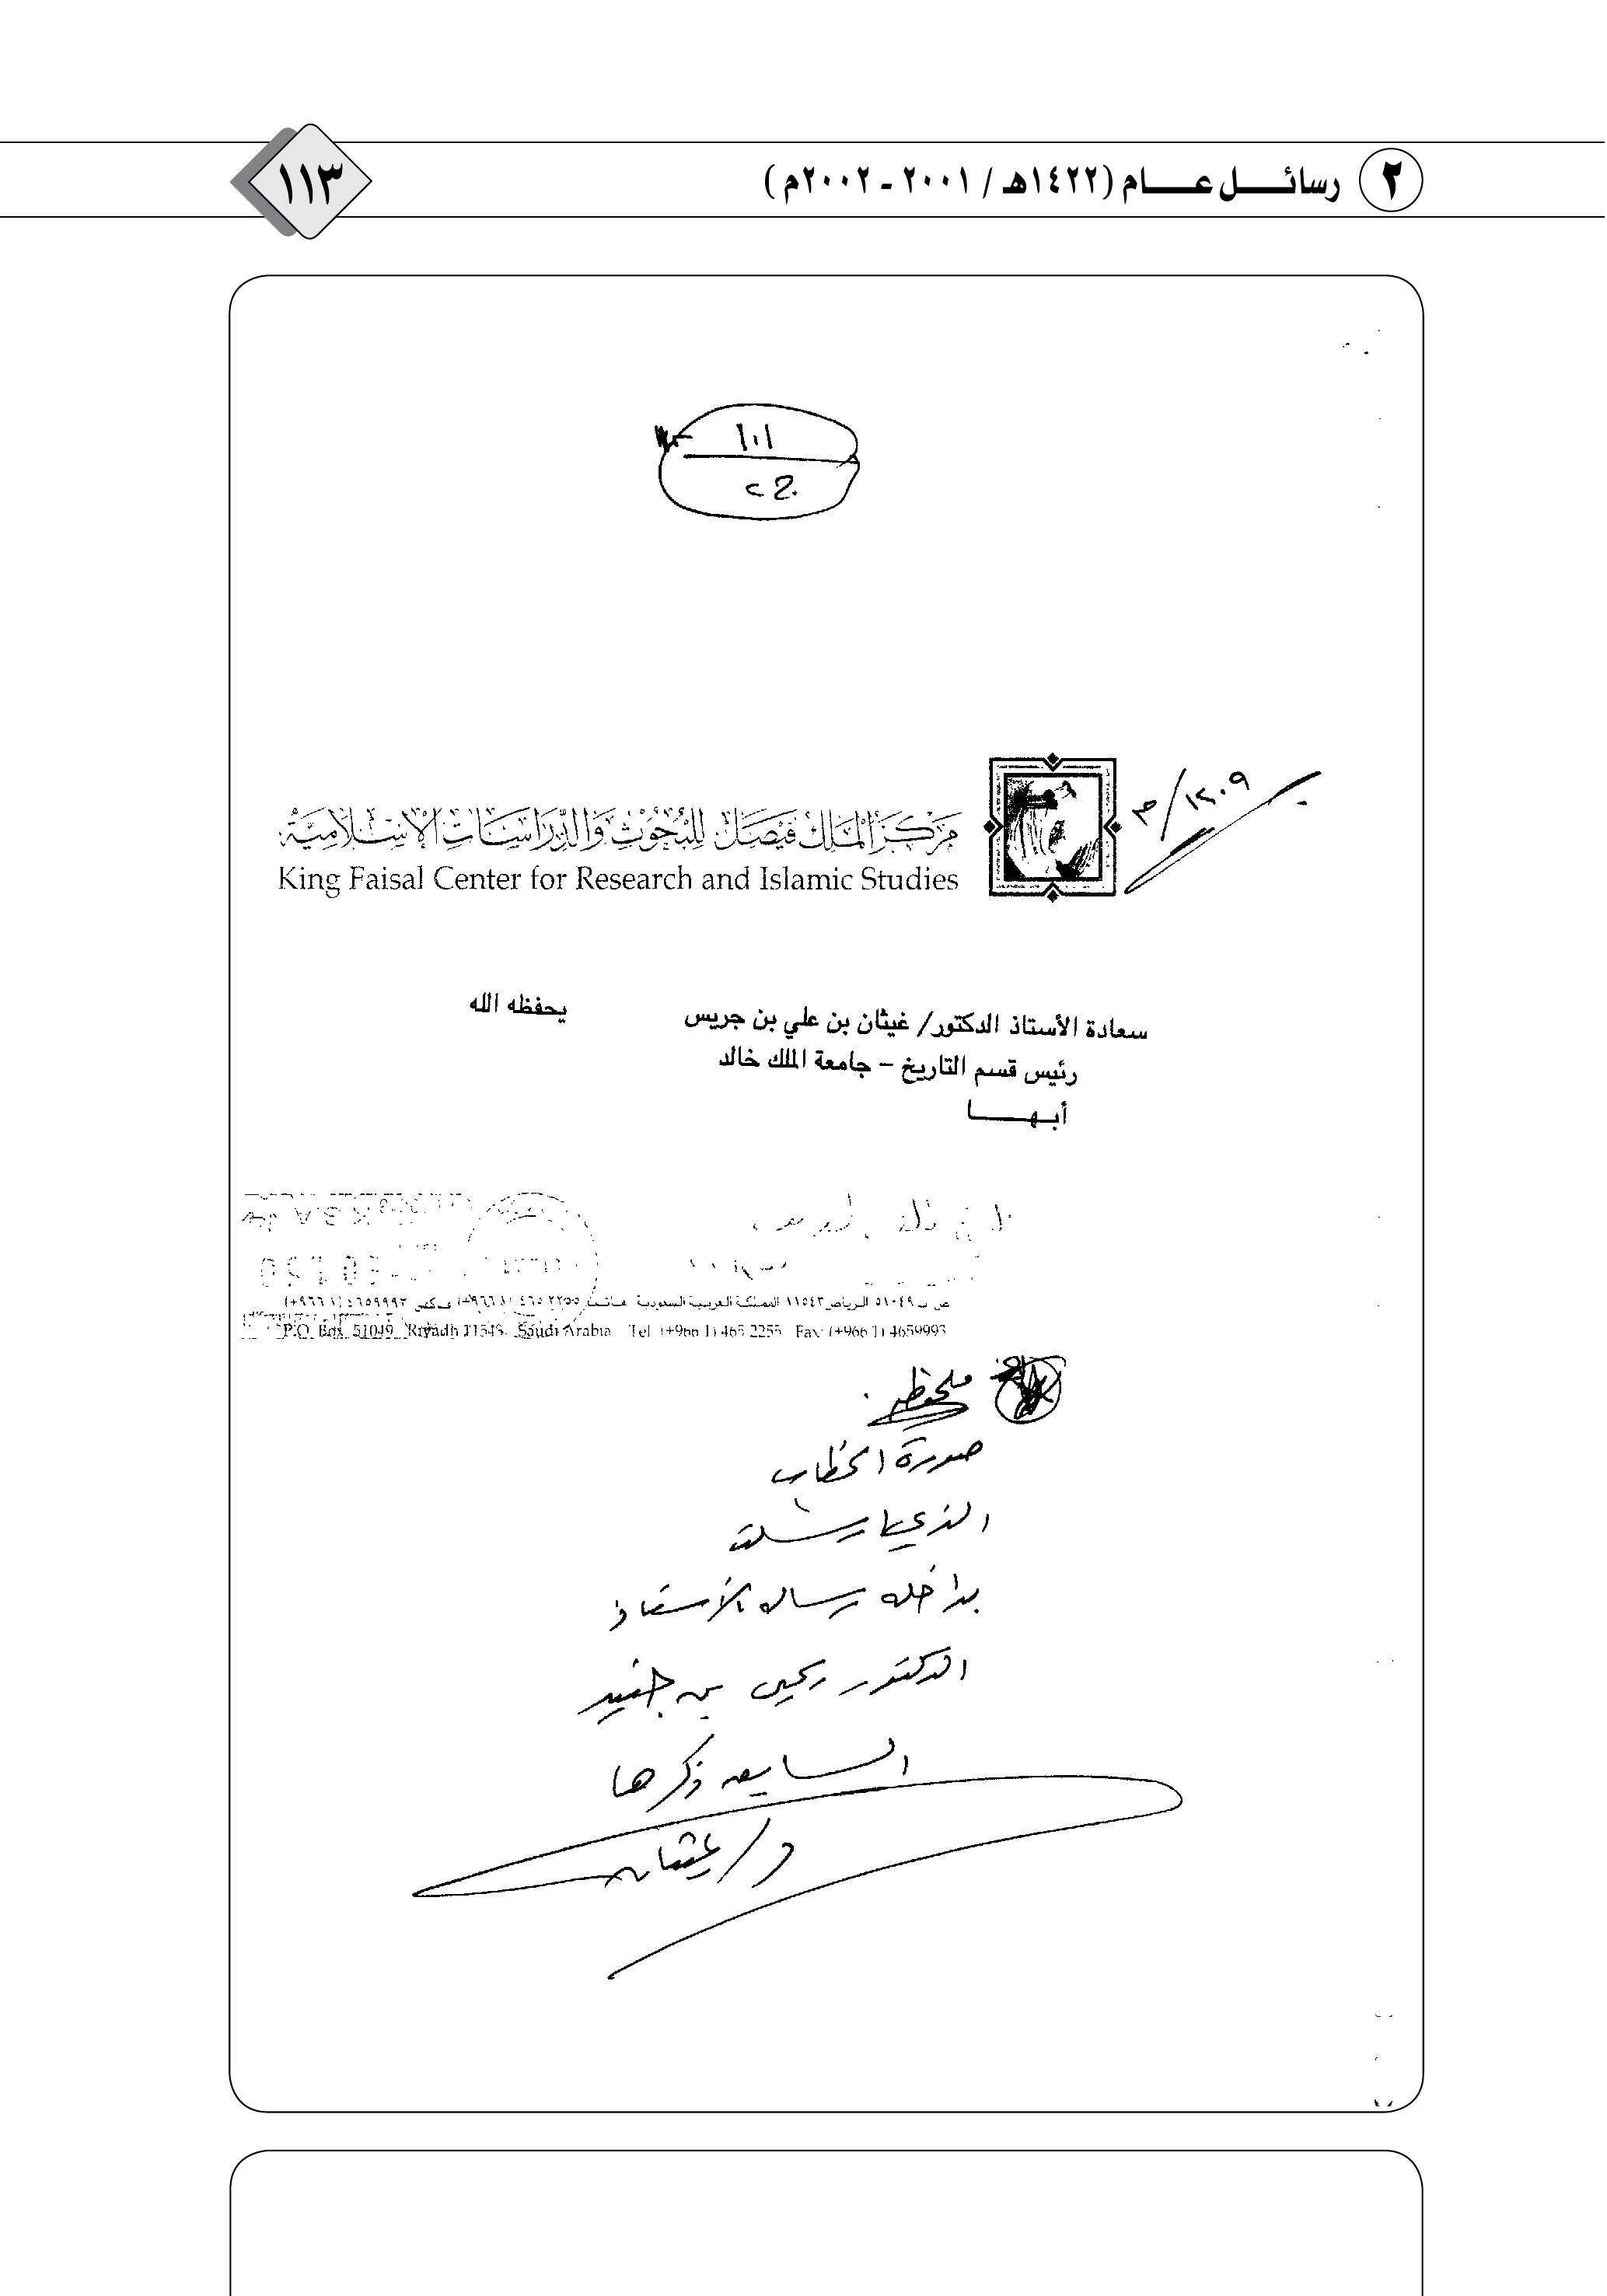 ٢ رسائل عام (١٤٢٢هـ / ٢٠٠١ - ٢٠٠٢م)
١١٣
١٠١
مركز الملك فيصل للبحوث والدراسات الإسلامية
King Faisal Center for Research and Islamic Studies
سعادة الأستاذ الدكتور/ غيثان بن علي بن جريس يحفظه الله
رئيس قسم التاريخ – جامعة الملك خالد
أبهـــا
ص ب ٥١٠٤٩ الرياض ١١٥٤٣ المملكة العربية السعودية هاتف ٤٦٥٢٢٥٥ (١ ٩٦٦+) فاكس ٤٦٥٩٩٩٣ (١ ٩٦٦+)
P.O. Box 51049 Riyadh 11543 Saudi Arabia Tel (+966 1) 465 2255 Fax (+966 1) 4659993
ملحوظة
صورة الخطاب
الذي أرسلت
بداخله رسالة الأستاذ
الدكتور يحيى بن جنيد
السابعة ذكرها
د/ غيثان